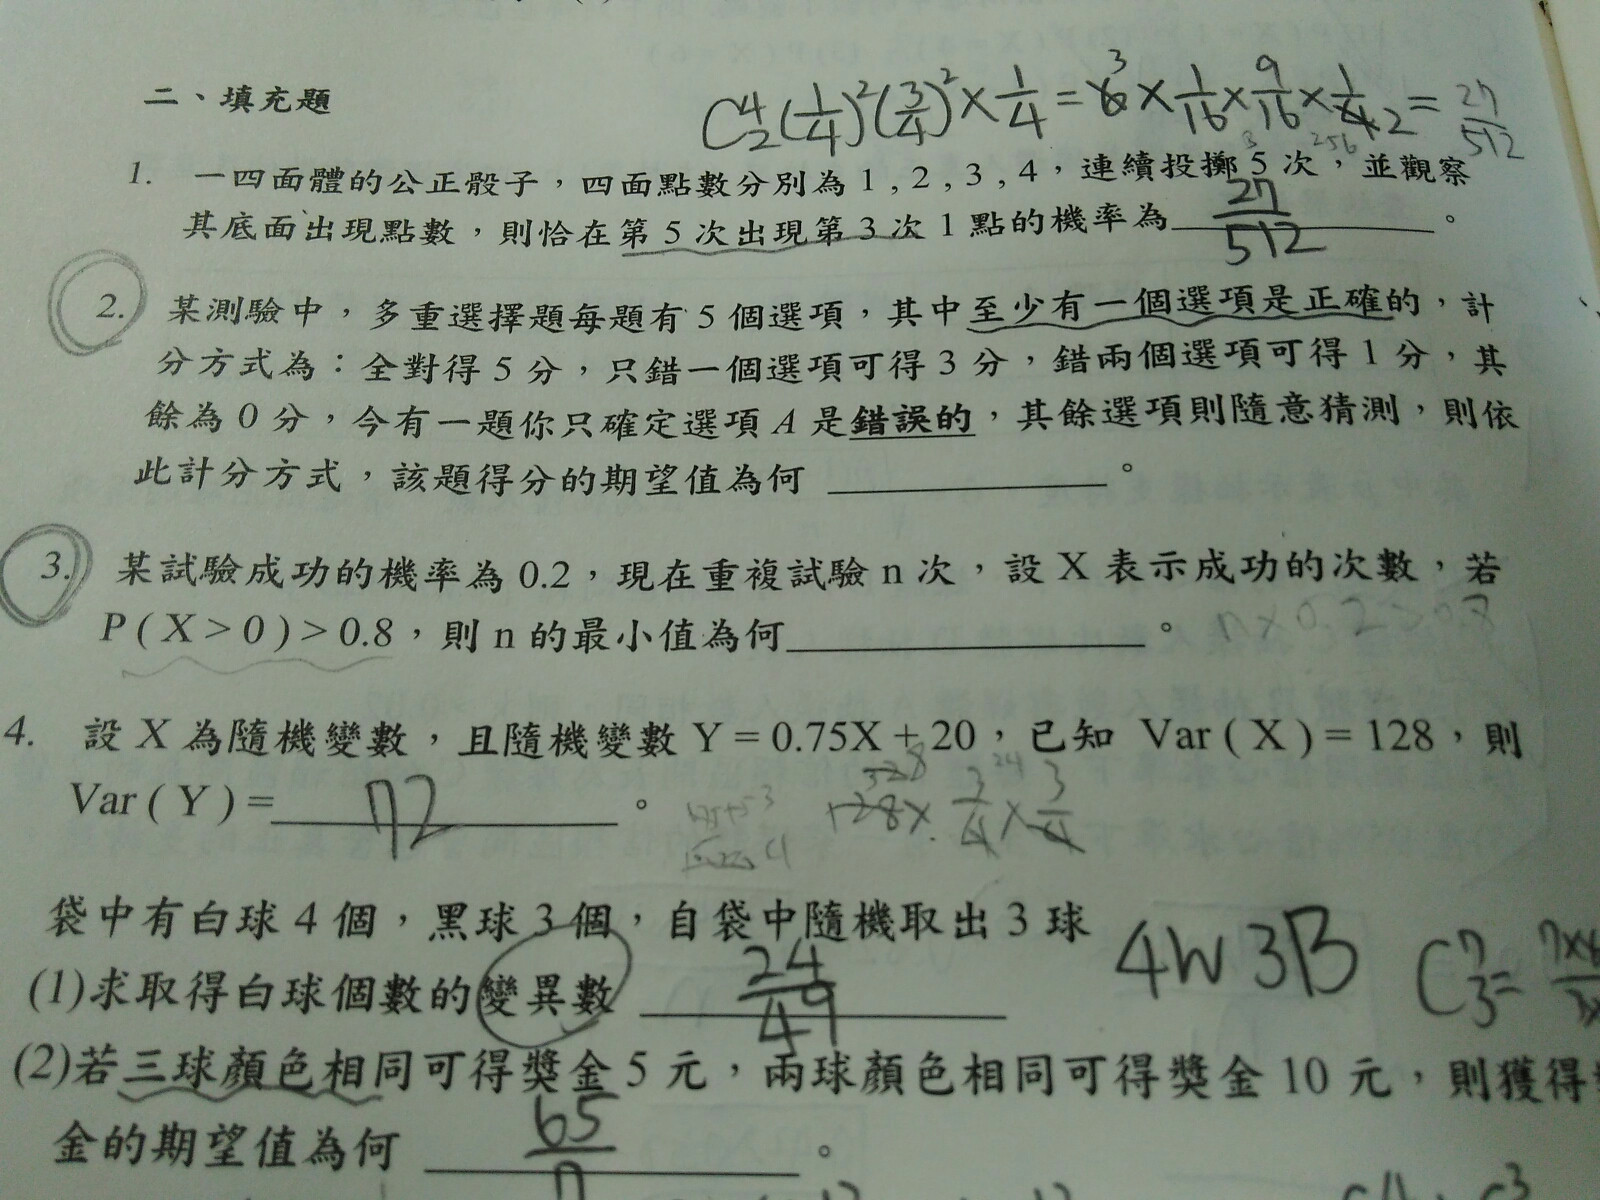 二、填充題
C⁴₂(1/4)²(3/4)²×1/4=6 3×1/16×9/16×1/4 2=27/512
1. 一四面體的公正骰子，四面點數分別為1,2,3,4，連續投擲5次，並觀察
其底面出現點數，則恰在第5次出現第3次1點的機率為 27/512 。
2. 某測驗中，多重選擇題每題有5個選項，其中至少有一個選項是正確的，計
分方式為：全對得5分，只錯一個選項可得3分，錯兩個選項可得1分，其
餘為0分，今有一題你只確定選項A是錯誤的，其餘選項則隨意猜測，則依
此計分方式，該題得分的期望值為何 。
3. 某試驗成功的機率為0.2，現在重複試驗n次，設X表示成功的次數，若
P(X>0)>0.8，則n的最小值為何 。
4. 設X為隨機變數，且隨機變數Y=0.75X+20，已知 Var(X)=128，則
Var(Y)= 72 。 128×3/4×3/4
袋中有白球4個，黑球3個，自袋中隨機取出3球
(1)求取得白球個數的變異數 24/49 4W 3B C⁷₃=
(2)若三球顏色相同可得獎金5元，兩球顏色相同可得獎金10元，則獲得
金的期望值為何 65/7 。